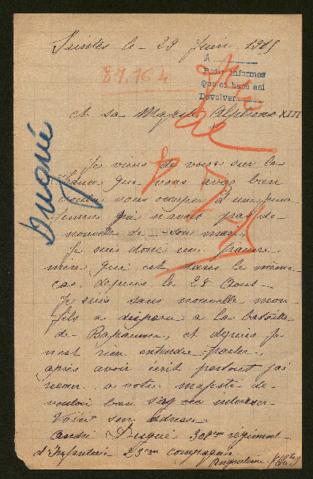 Saintes le - 29 Juin 1915
A
Pedir informes
Devolver
81.164
A sa Majesté Alphonse XIII
Dugué
Je viens de voir sur les
que vous avez bien
voulu vous occuper d'une
femme qui n'avait pas de
nouvelle de son mari
Je suis donc une pauvre
mère qui est dans le même
cas, depuis le 28 Aout
Je suis sans nouvelle mon
fils a disparu a la bataille
de Bapaume, et depuis je
n'est rien entendu parler,
après avoir écrit partout j'ai
a votre majesté de
vouloir bien
Voici son adresse
André Dugué 307me régiment
d'Infanterie 23me compagnie
Angoulême